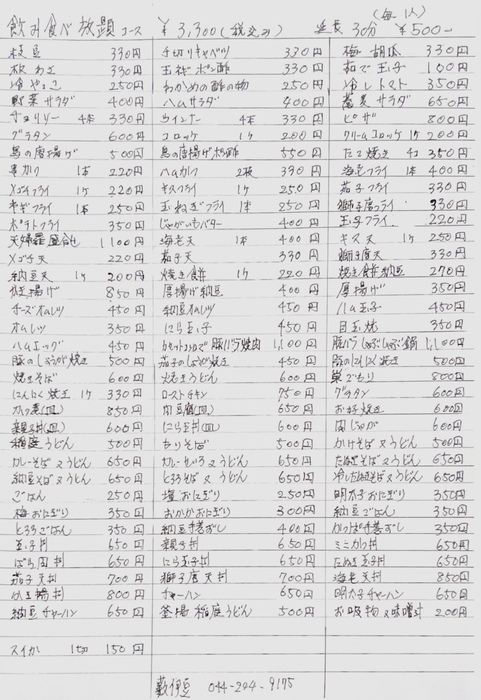 飲み食べ放題コース ¥3,300(税込み) 延長 30分 (毎1人) ¥500-
枝豆 330円 千切りキャベツ 330円 梅胡瓜 330円
板わさ 330円 玉ねぎポン酢 330円 茹で玉子 100円
冷やっこ 250円 わかめの酢の物 250円 冷しトマト 350円
野菜サラダ 400円 ハムサラダ 400円 蕎麦サラダ 650円
チョリソー 4本 330円 ウインナー 4本 330円 ピザ 800円
グラタン 600円 コロッケ 1ケ 200円 クリームコロッケ 1ケ 200円
鳥の唐揚げ 500円 鳥の唐揚げポン酢 550円 たこ焼き 4コ 350円
串カツ 1本 220円 ハムカツ 2枚 390円 海老フライ 1本 400円
メゴチフライ 1ケ 220円 キスフライ 1ケ 250円 茄子フライ 330円
キギフライ 1本 250円 玉ねぎフライ 1本 250円 獅子唐フライ 330円
ポテトフライ 350円 じゃがいもバター 400円 玉子フライ 220円
天婦羅盛合せ 1,100円 海老天 1本 400円 キス天 1ケ 250円
メゴチ天 220円 茄子天 330円 獅子唐天 330円
納豆天 1ケ 200円 焼き餃子 1ケ 220円 焼き餃子納豆 270円
かき揚げ 850円 厚揚げ納豆 400円 厚揚げ 350円
チーズオムレツ 450円 納豆オムレツ 450円 ハム玉子 450円
オムレツ 350円 にら玉子 450円 目玉焼 350円
ハムエッグ 450円 カセットコンロで豚バラ焼肉 1,100円 豚バラしゃぶしゃぶ鍋 1,100円
豚のしょうが焼き 500円 茄子のしょうが焼き 450円 豚のにんにく焼き 500円
焼きそば 600円 焼きうどん 600円 巣ごもり 800円
にんにく焼き 1ケ 330円 ローストチキン 750円 グラタン 600円
カツ煮(皿) 850円 肉豆腐(皿) 650円 お好み焼き 600円
親子丼(皿) 600円 にら玉丼(皿) 600円 肉じゃが 600円
稲庭うどん 500円 もりそば 500円 かけそば又うどん 500円
カレーそば又うどん 650円 カレーせいろ又うどん 650円 たぬきそば又うどん 650円
納豆そば又うどん 650円 とろろそば又うどん 650円 冷したぬきそば又うどん 650円
ごはん 250円 塩おにぎり 250円 明太子おにぎり 350円
梅おにぎり 350円 おかかおにぎり 300円 納豆ごはん 350円
とろろごはん 350円 納豆手巻ずし 400円 かっぱ手巻ずし 350円
玉子丼 650円 親子丼 650円 ミニカツ丼 650円
ばら肉丼 650円 にら玉子丼 650円 たぬき玉丼 650円
茄子天丼 700円 獅子唐天丼 700円 海老天丼 850円
かき揚丼 800円 チャーハン 650円 明太子チャーハン 650円
納豆チャーハン 650円 釜揚稲庭うどん 500円 お吸物又味噌汁 200円
スイカ 1切 150円
藪伊豆 044-244-9175